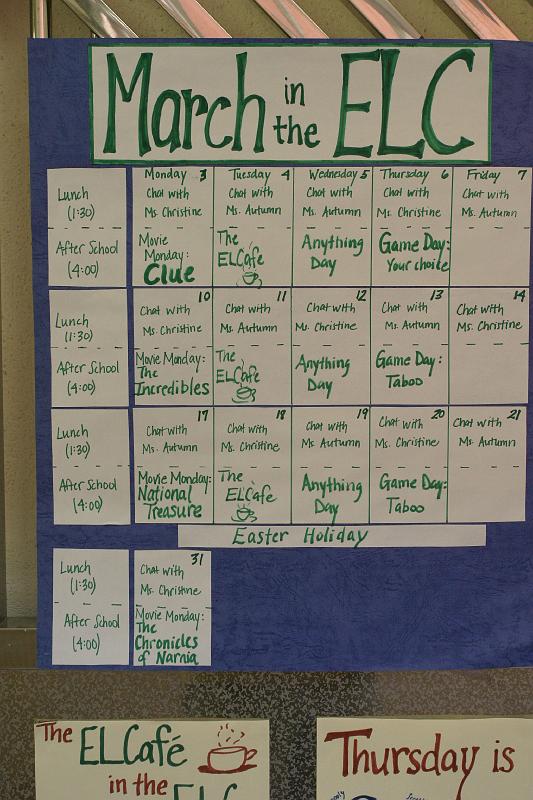 March in the ELC
Monday 3 Tuesday 4 Wednesday 5 Thursday 6 Friday 7
Lunch Chat with Chat with Chat with Chat with Chat with
(1:30) Ms. Christine Ms. Autumn Ms. Autumn Ms. Christine Ms. Autumn
After School Movie The Anything Game Day:
(4:00) Monday: ELCafe Day Your choice
Clue
10 11 12 13 14
Lunch Chat with Chat with Chat with Chat with Chat with
(1:30) Ms. Christine Ms. Autumn Ms. Christine Ms. Autumn Ms. Christine
After School Movie Monday: The Anything Game Day:
(4:00) The ELCafe Day Taboo
Incredibles
17 18 19 20 21
Lunch Chat with Chat with Chat with Chat with Chat with
(1:30) Ms. Autumn Ms. Christine Ms. Autumn Ms. Christine Ms. Autumn
After School Movie Monday: The Anything Game Day:
(4:00) National ELCafe Day Taboo
Treasure
Easter Holiday
31
Lunch Chat with
(1:30) Ms. Christine
After School Movie Monday:
(4:00) The
Chronicles
of Narnia
The ELCafé
in the ELC
Thursday is